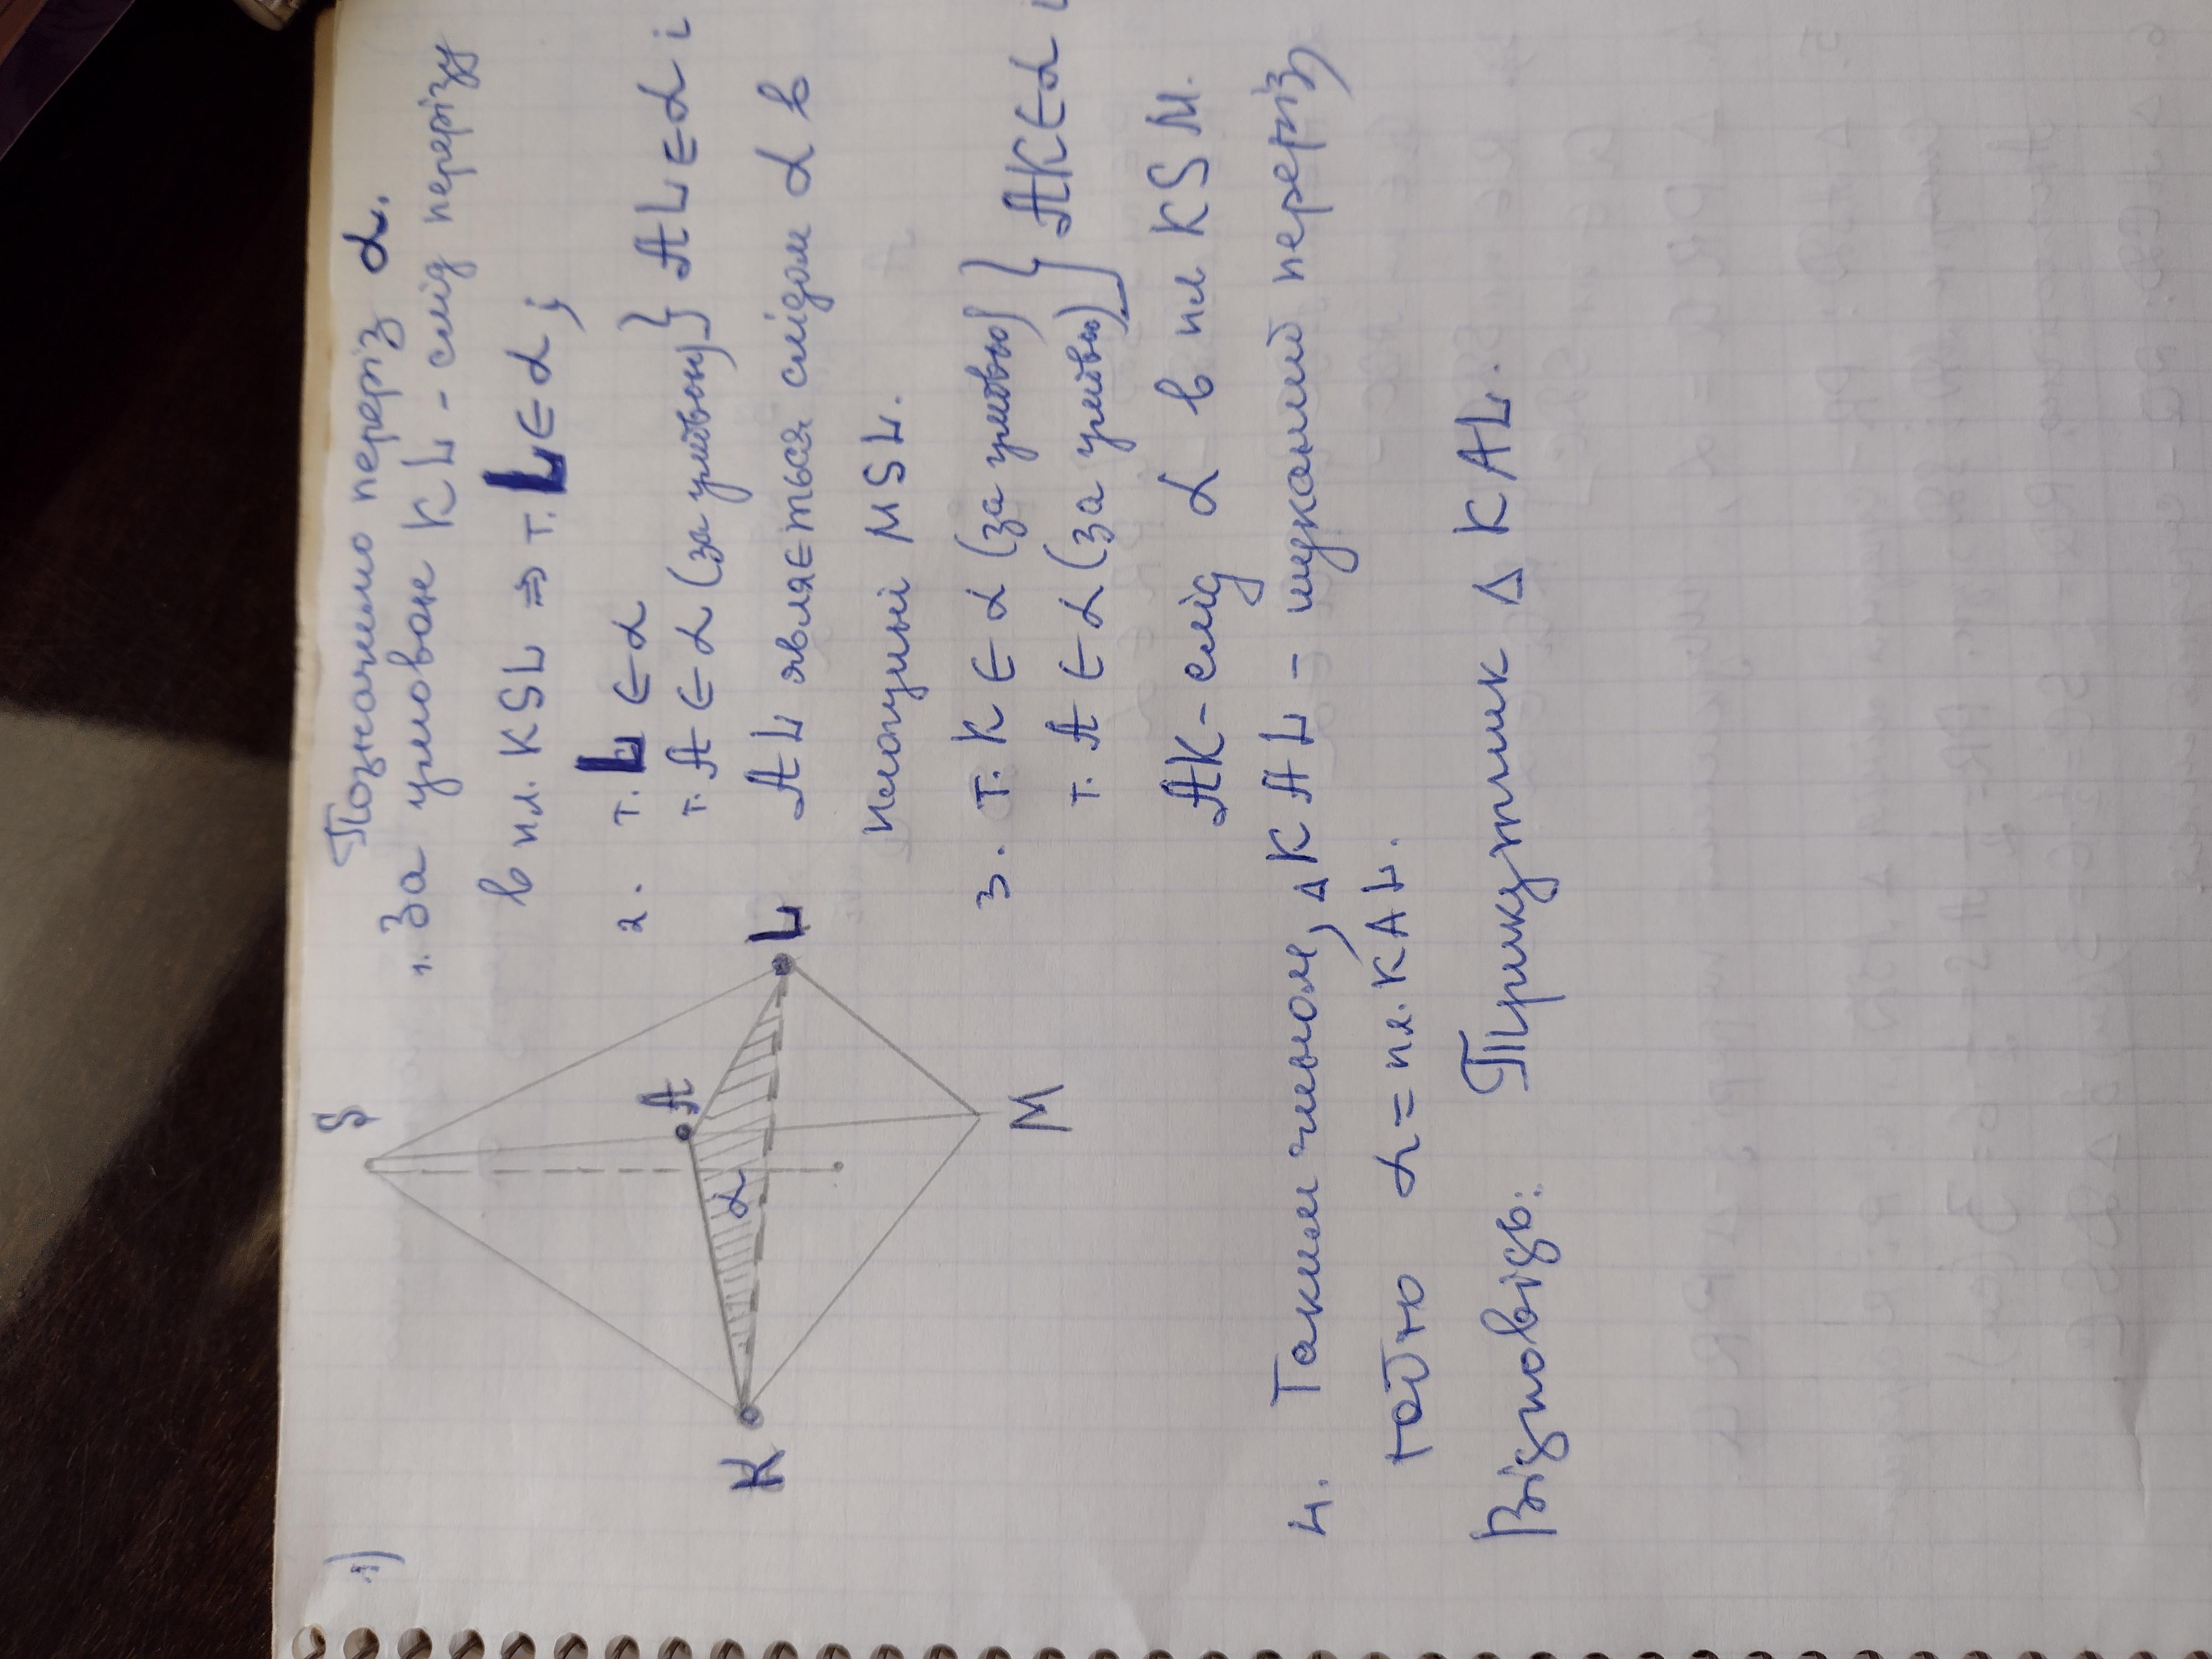 1)
Позначимо переріз α.
1. За умовою KL - слід перерізу
в пл. KSL ⇒ т. L ∈ α;
2. т. L ∈ α
т. A ∈ α (за умовою) } AL ∈ α і
AL являється слідом α в
площині MSL.
3. т. K ∈ α (за умовою)
т. A ∈ α (за умовою) } AK ∈ α і
AK - слід α в пл KSM.
S
A
α
K
L
M
4. Таким чином, ΔKAL - шуканий переріз,
тобто α = пл. KAL.
Відповідь: Трикутник Δ KAL.